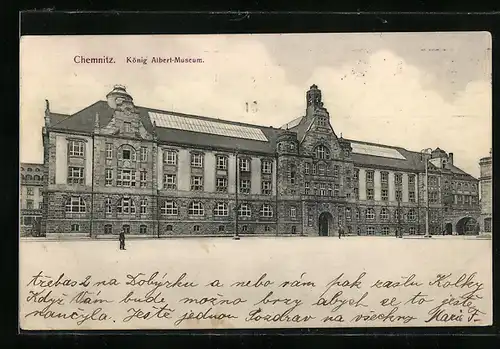 Chemnitz. König Albert-Museum.
třebas 2 na Dobýrku a nebo nám pak zašlu Kolky
Když Vám bude možno brzy abych se to ještě
naučyla. Ještě jednou Pozdrav na všechny Marie F.